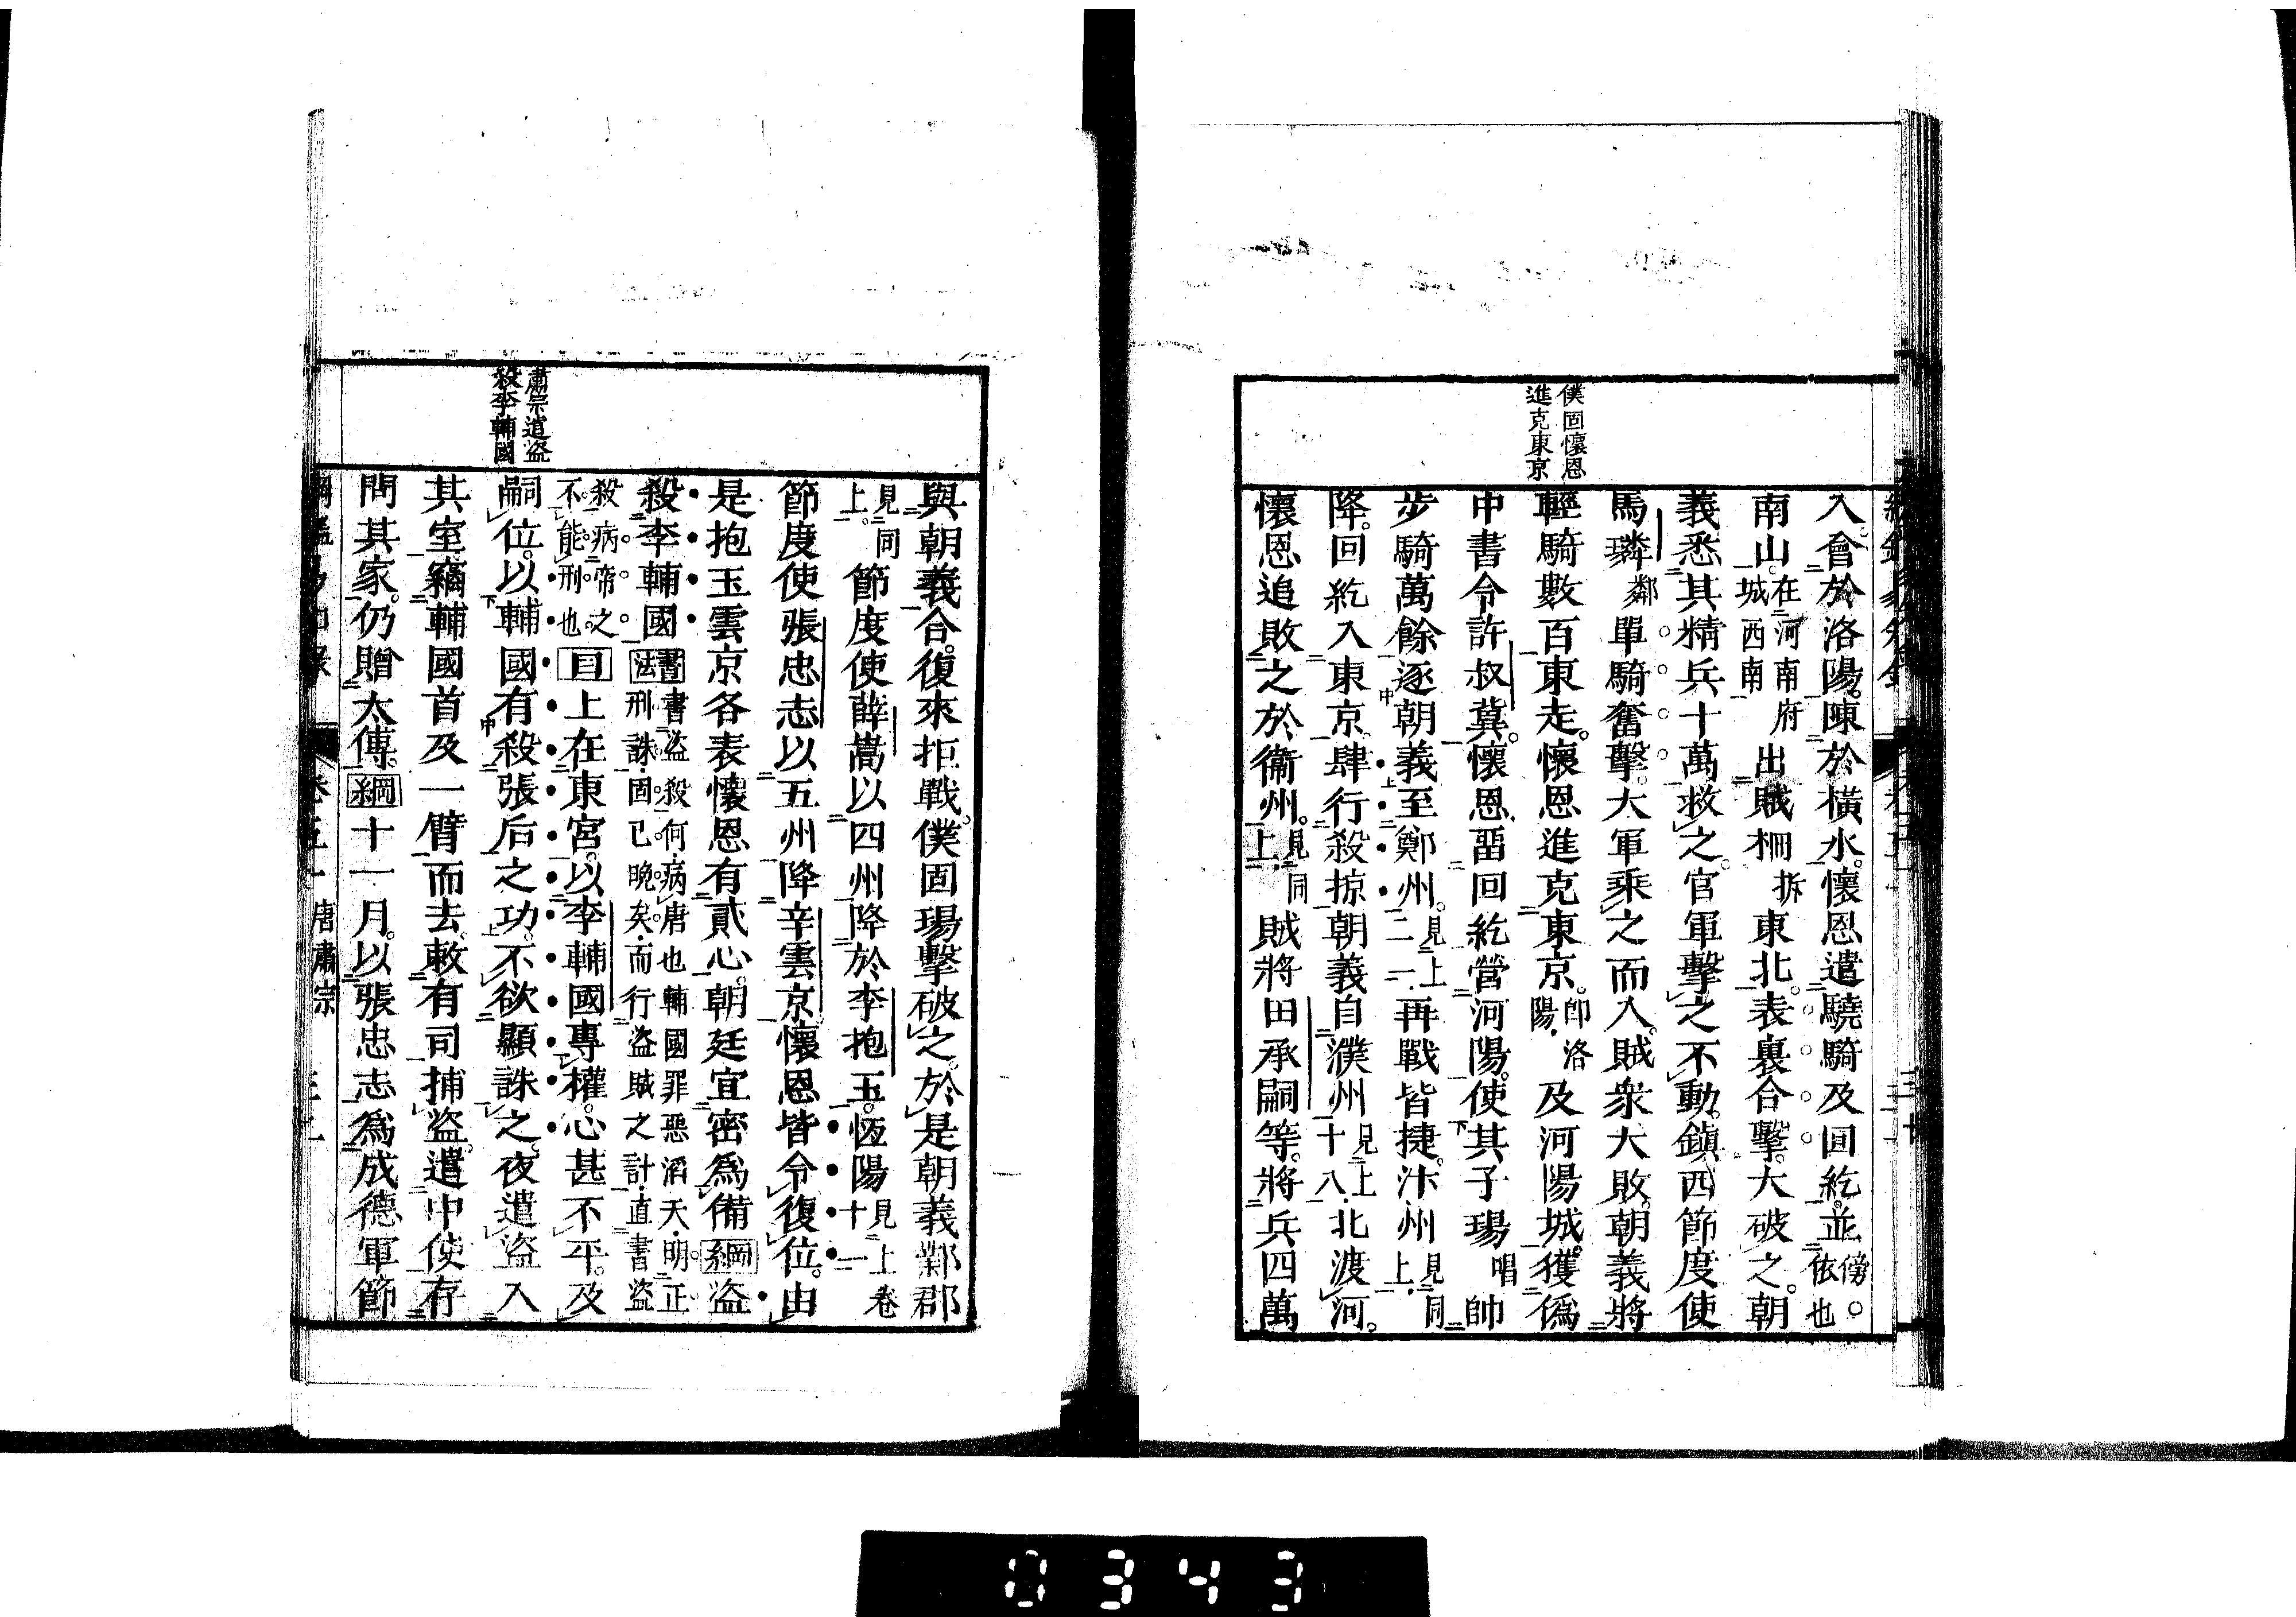 僕固懷恩
進克東京
入會於洛陽。陳於橫水。懷恩遣驍騎及回紇。並傍依也
南山。在河南府城西南出賊柵拆東北。表裏合擊。大破之。朝
義悉其精兵十萬救之。官軍擊之不動。鎮西節度使
馬璘鄰單騎奮擊。大軍乘之而入。賊衆大敗。朝義將
輕騎數百東走。懷恩進克東京。卽洛陽及河陽城。獲僞
中書令許叔冀。懷恩留回紇營河陽。使其子瑒唱帥
步騎萬餘逐朝義至鄭州。見上二一再戰皆捷。汴州見同上
降。回紇入東京。肆行殺掠。朝義自濮州見上十八北渡河。
懷恩追敗之於衞州。見同上賊將田承嗣等。將兵四萬
肅宗遣盜
殺李輔國
與朝義合。復來拒戰。僕固瑒擊破之。於是朝義鄴郡
見同上節度使薛嵩以四州降於李抱玉。恆陽見上卷十一
節度使張忠志以五州降辛雲京。懷恩皆令復位。由
是抱玉雲京各表懷恩有貳心。朝廷宜密爲備綱盜
殺李輔國書法書盜殺何病唐也輔國罪惡滔天明正刑誅固已晚矣而行盜賊之計直書盜
殺病帝之不能刑也目上在東宮。以李輔國專權。心甚不平。及
嗣位。以輔國有殺張后之功。不欲顯誅之。夜遣盜入
其室竊輔國首及一臂而去。敕有司捕盜。遣中使存
問其家。仍贈太傅。綱十一月。以張忠志爲成德軍節
唐肅宗
0343